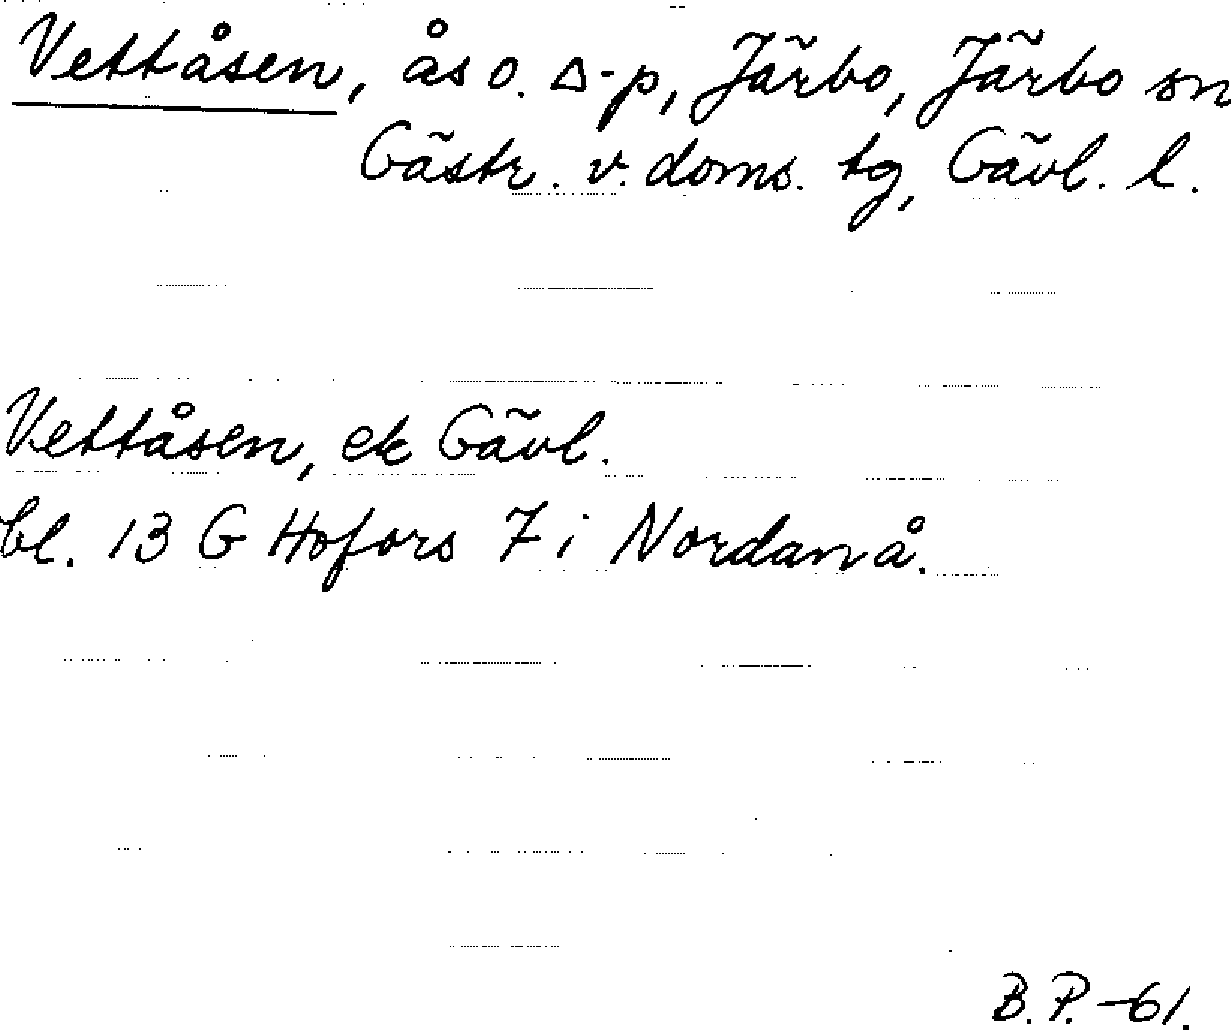 Vettåsen, ås o. Δ-p, Järbo, Järbo sn
Gästr. v. doms. tg, Gävl. l.
Vettåsen, ek Gävl.
bl. 13 G Hofors 7 i Nordanå.
B.P. -61.